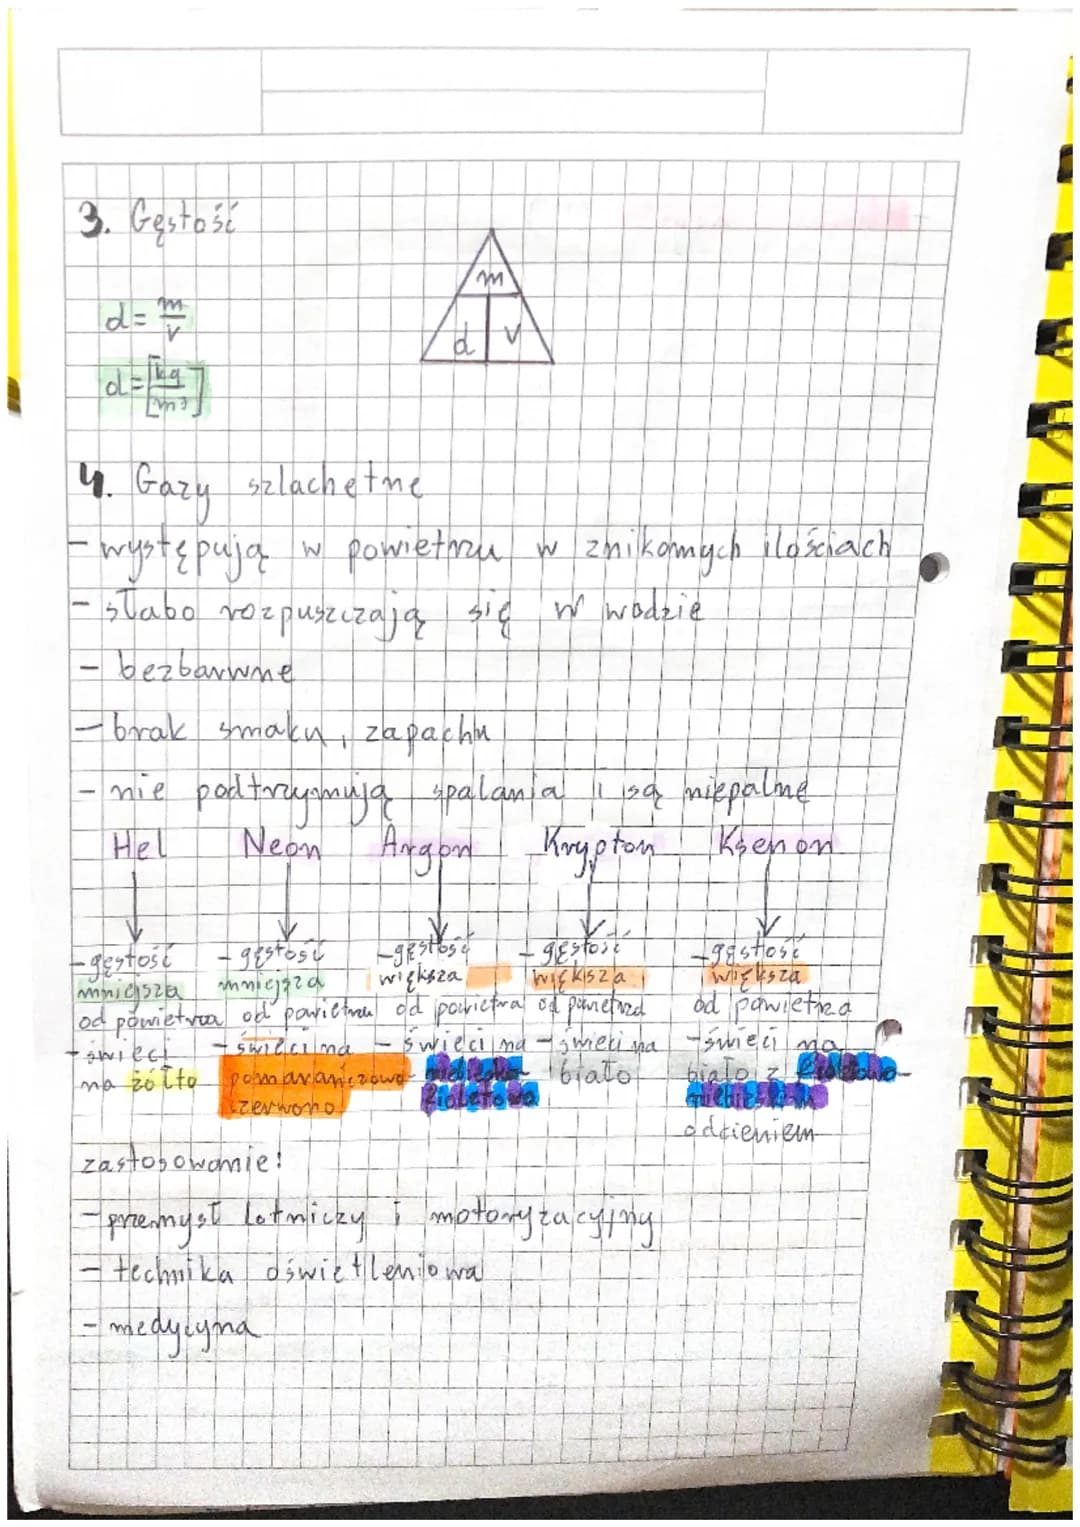 3. Gęstość
m
d v
d = m/v
d = [kg/m³]
4. Gazy szlachetne
- występują w powietrzu w znikomych ilościach
- słabo rozpuszczają się w wodzie
- bezbarwne
- brak smaku, zapachu
- nie podtrzymują spalania i są niepalne
Hel Neon Argon Krypton Ksenon
- gęstość - gęstość - gęstość - gęstość - gęstość
mniejsza mniejsza większa większa większa
od powietrza od powietrza od powietrza od powietrza od powietrza
- świeci - świeci na - świeci na - świeci na - świeci na
na żółto pomarańczowo- niebiesko- biało biało z fioletowo-
czerwono fioletowo niebieskim
odcieniem
zastosowanie:
- przemysł lotniczy i motoryzacyjny
- technika oświetleniowa
- medycyna